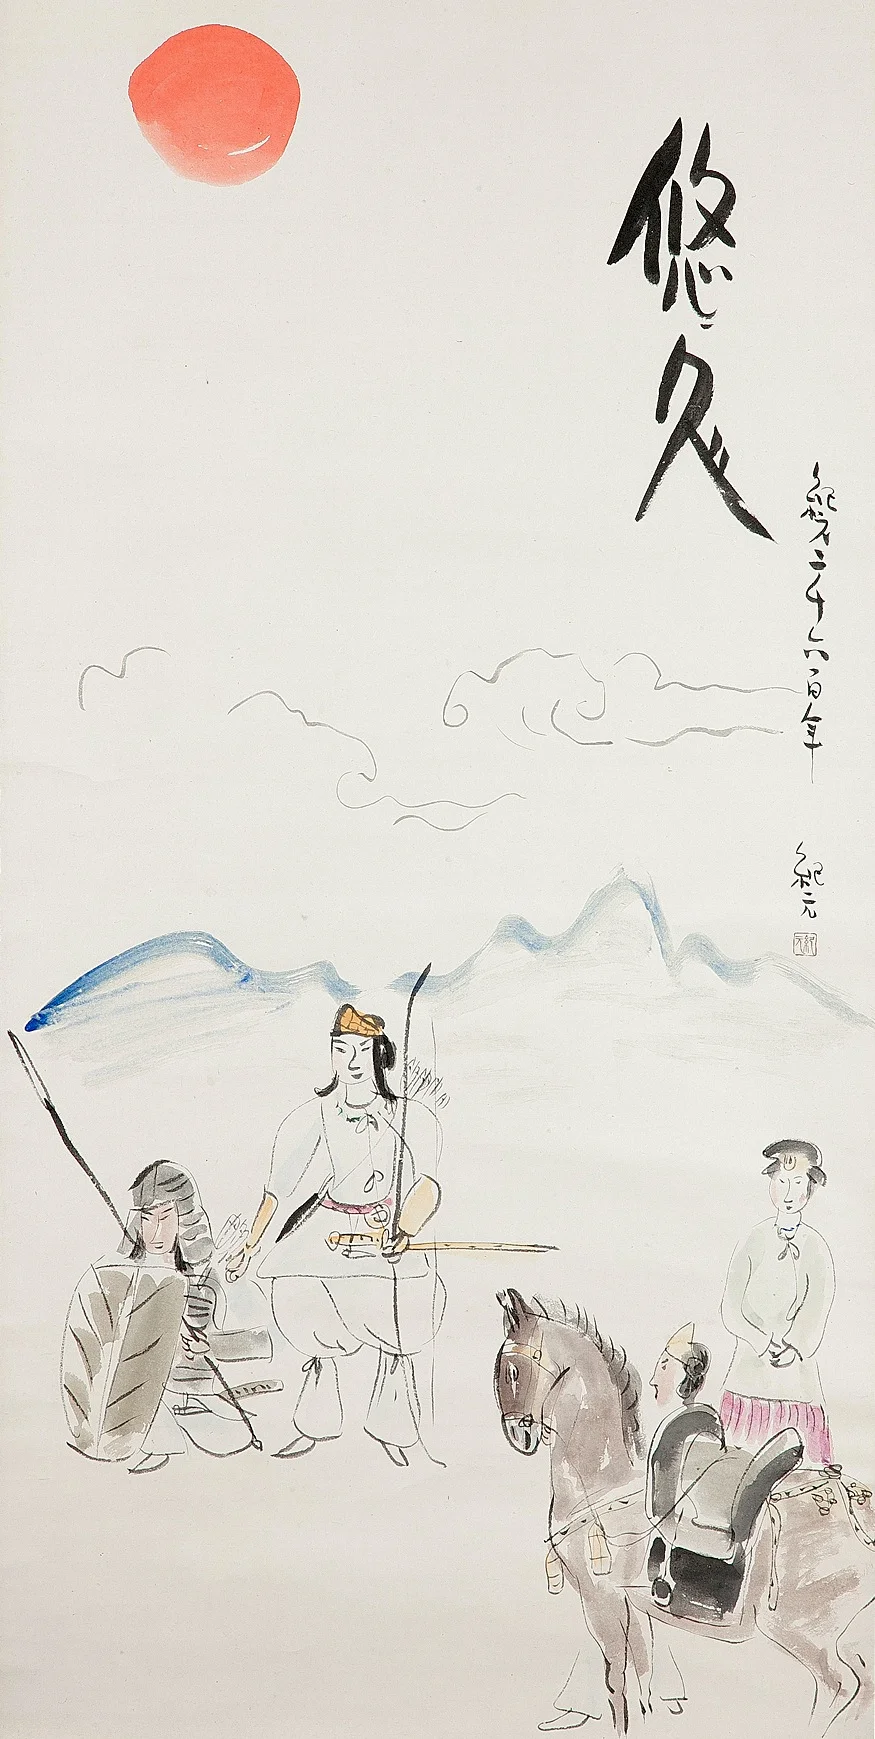 悠久
紀元二千六百年
紀元
紀元